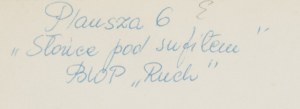 Plansza 6
„Słońce pod sufitem"
BWP „Ruch"